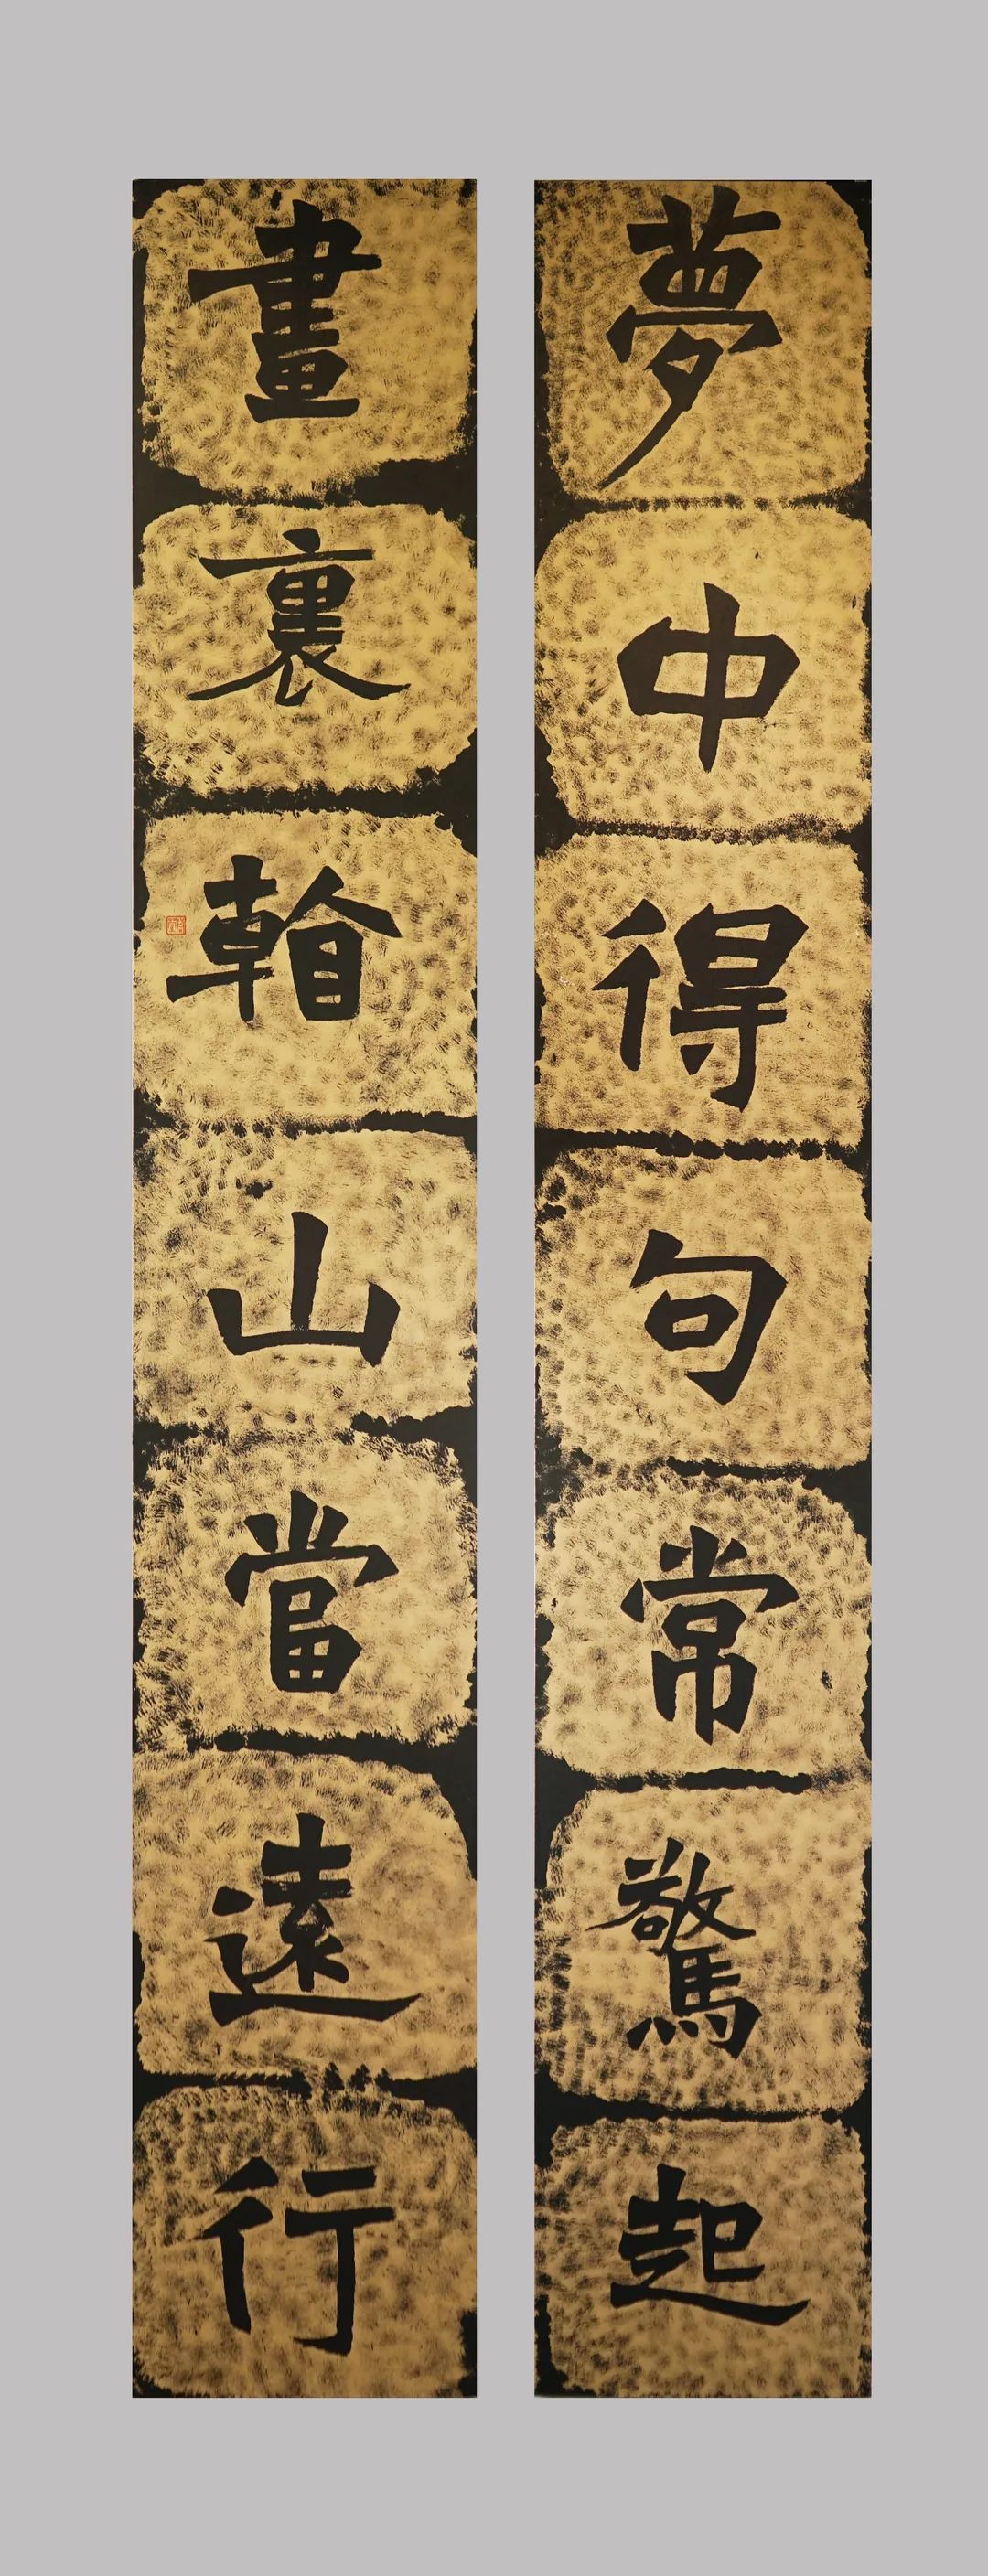 夢中得句常驚起
畫裏看山當遠行